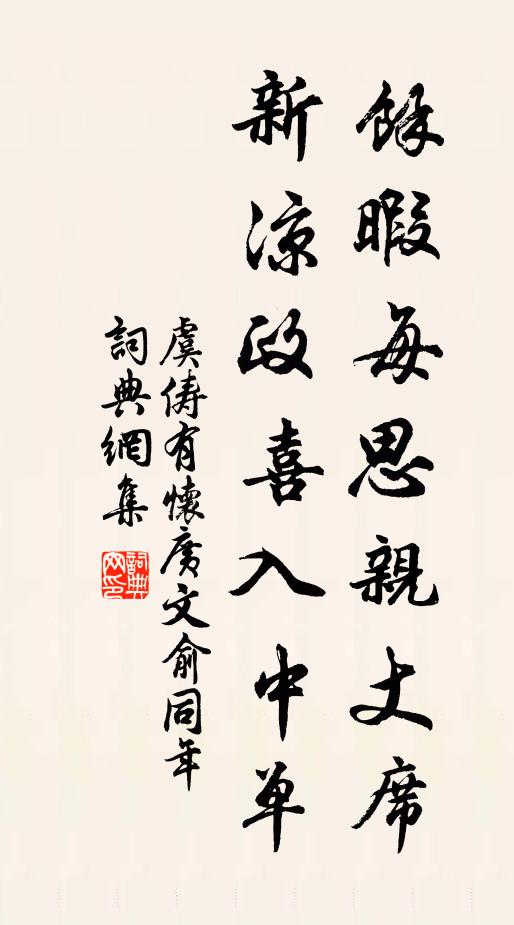 餘暇每思親丈席
新涼政喜入中單
虞儔有懷廣文俞同年
詞典網集
詞典網印